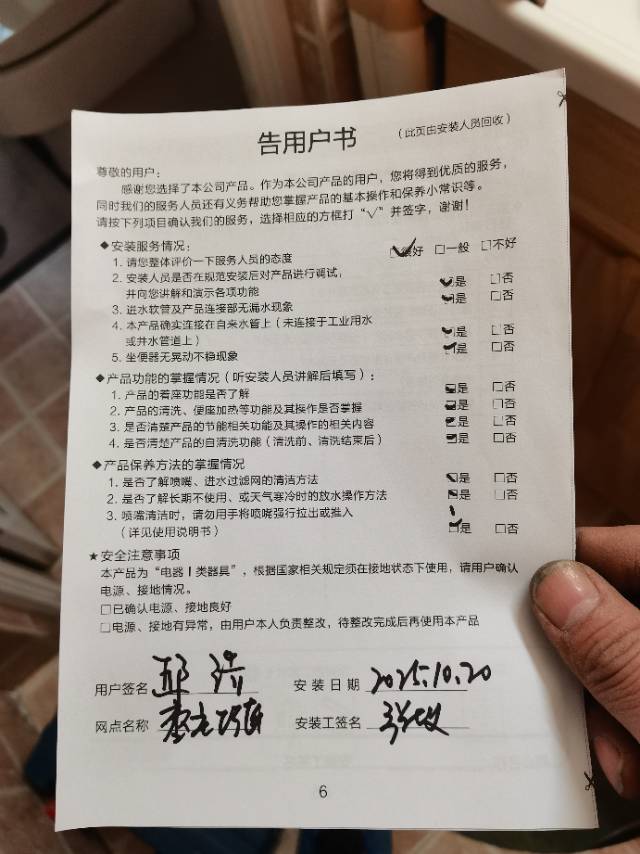 告用户书 （此页由安装人员回收）
尊敬的用户：
感谢您选择了本公司产品。作为本公司产品的用户，您将得到优质的服务，
同时我们的服务人员还有义务帮助您掌握产品的基本操作和保养小常识等。
请按下列项目确认我们的服务，选择相应的方框打“√”并签字，谢谢！
◆安装服务情况：
1. 请您整体评价一下服务人员的态度 ☑很好 □一般 □不好
2. 安装人员是否在规范安装后对产品进行调试，
并向您讲解和演示各项功能 ☑是 □否
3. 进水软管及产品连接部无漏水现象 ☑是 □否
4. 本产品确实连接在自来水管上（未连接于工业用水
或井水管道上） ☑是 □否
5. 坐便器无晃动不稳现象 ☑是 □否
◆产品功能的掌握情况（听安装人员讲解后填写）：
1. 产品的着座功能是否了解 ☑是 □否
2. 产品的清洗、便座加热等功能及其操作是否掌握 ☑是 □否
3. 是否清楚产品的节能相关功能及其操作的相关内容 ☑是 □否
4. 是否清楚产品的自清洗功能（清洗前、清洗结束后） ☑是 □否
◆产品保养方法的掌握情况
1. 是否了解喷嘴、进水过滤网的清洁方法 ☑是 □否
2. 是否了解长期不使用、或天气寒冷时的放水操作方法 ☑是 □否
3. 喷嘴清洁时，请勿用手将喷嘴强行拉出或推入
（详见使用说明书） ☑是 □否
★安全注意事项
本产品为“电器Ⅰ类器具”，根据国家相关规定须在接地状态下使用，请用户确认
电源、接地情况。
□已确认电源、接地良好
□电源、接地有异常，由用户本人负责整改，待整改完成后再使用本产品
用户签名 安装日期 2025.10.20
网点名称 安装工签名
6